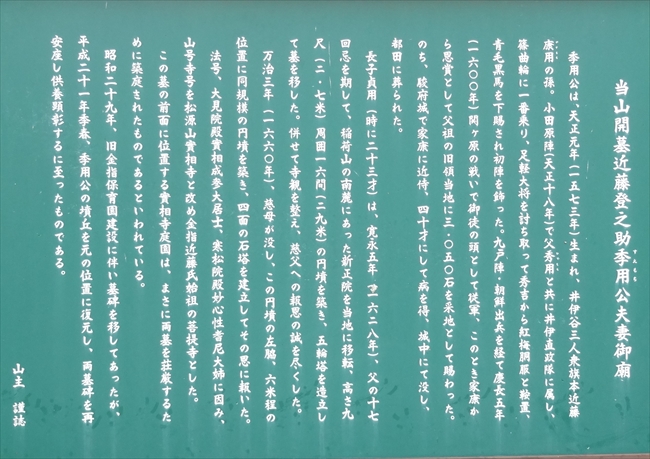 当山開基近藤登之助季用公夫妻御廟
すえもち
季用公は、天正元年(一五七三年)生まれ、井伊谷三人衆旗本近藤
康用の孫、小田原陣(天正十八年)で父秀用と共に井伊直政隊に属し、
篠曲輪に一番乗り、足軽大将を討ち取って秀吉から紅梅胴服と鞍置、
青毛黒馬を下賜され初陣を飾った。九戸陣・朝鮮出兵を経て慶長五年
(一六〇〇年)関ヶ原の戦いで御徒の頭として従軍、このとき家康か
ら恩賞として父祖の旧領当地に三・〇五〇石を采地として賜わった。
のち、駿府城で家康に近侍、四十才にして病を得、城中にて没し、
都田に葬られた。
長子貞用(時に二十三才)は、寛永五年(一六二八年)、父の十七
回忌を期して、稲荷山の南麓にあった新正院を当地に移転、高さ九
尺(二・七米)周囲一六間(二九米)の円墳を築き、五輪塔を造立し
て墓を移した。併せて寺観を整え、慈父への報恩の誠を尽くした。
万治三年(一六六〇年)、慈母が没し、この円墳の左脇、六米程の
位置に同規模の円墳を築き、四面の石塔を建立してその恩に報いた。
法号、大見院殿實相成参大居士、寒松院殿妙心性耆尼大姉に因み、
山号寺号を松源山實相寺と改め金指近藤氏始祖の菩提寺とした。
この墓の前面に位置する實相寺庭園は、まさに両墓を荘厳するた
めに築庭されたものであるといわれている。
昭和二十九年、旧金指保育園建設に伴い墓碑を移してあったが、
平成二十一年季春、季用公の墳丘を元の位置に復元し、両墓碑を再
安座し供養顕彰するに至ったものである。
山主 謹誌